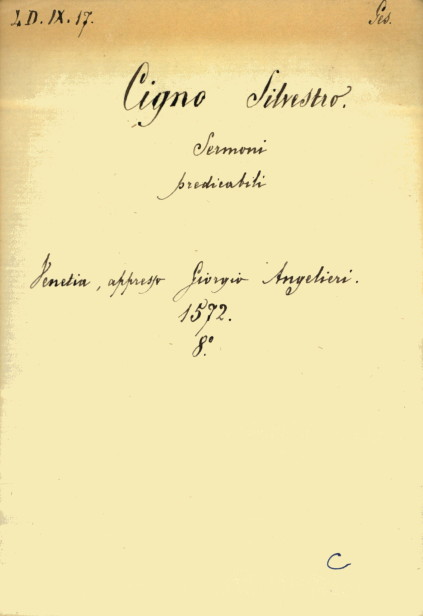 I D. IX. 17. Ges.
Cigno Silvestro.
Sermoni
predicabili
Venetia, appresso Giorgio Angelieri.
1572.
8.º
C